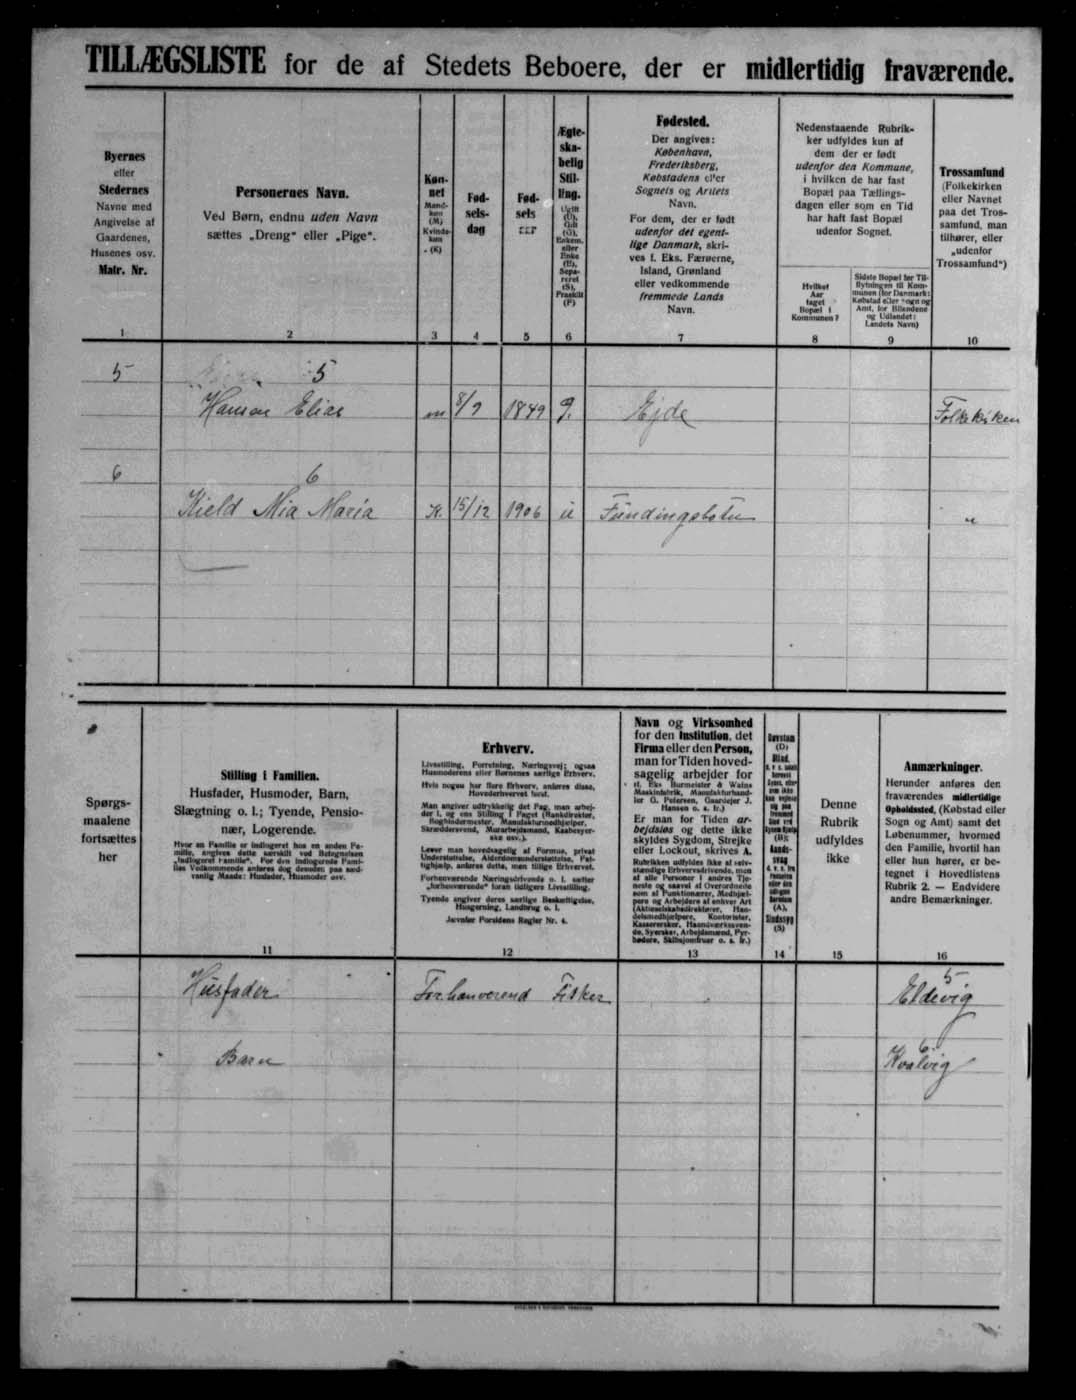 TILLÆGSLISTE for de af Stedets Beboere, der er midlertidig fraværende.
Byernes
eller
Stedernes
Navne med
Angivelse af
Gaardenes,
Husenes osv.
Matr. Nr.
1
Personernes Navn.
Ved Børn, endnu uden Navn
sættes „Dreng“ eller „Pige“.
2
Køn-
net
Mand-
køn
(M)
Kvinde-
køn
(K)
3
Fød-
sels-
dag
4
Fød-
sels
5
Ægte-
ska-
belig
Stil-
ling.
Ugift
(U),
Gift
(G),
Enkem.
eller
Enke
(E),
Sepa-
reret
(S),
Fraskilt
(F)
6
Fødested.
Der angives:
København,
Frederiksberg,
Købstadens eller
Sognets og Amtets
Navn.
For dem, der er født
udenfor det egent-
lige Danmark, skri-
ves f. Eks. Færøerne,
Island, Grønland
eller vedkommende
fremmede Lands
Navn.
7
Nedenstaaende Rubrik-
ker udfyldes kun af
dem der er født
udenfor den Kommune,
i hvilken de har fast
Bopæl paa Tællings-
dagen eller som en Tid
har haft fast Bopæl
udenfor Sognet.
Hvilket
Aar
taget
Bopæl i
Kommunen?
8
Sidste Bopæl før Til-
flytningen til Kom-
munen (for Danmark:
Købstad eller Sogn og
Amt, for Bilandene
og Udlandet:
Landets Navn)
9
Trossamfund
(Folkekirken
eller Navnet
paa det Tros-
samfund, man
tilhører, eller
„udenfor
Trossamfund“)
10
5 5
Hanson Elias m 8/9 1849 g. Ejde Folkekirken
6 6
Kield Mia Maria K. 15/12 1906 ü Fundingsbotn "
Spørgs-
maalene
fortsættes
her
Stilling i Familien.
Husfader, Husmoder, Barn,
Slægtning o. l.; Tyende, Pensio-
nær, Logerende.
Hvor en Familie er indlogeret hos en anden Fa-
milie, angives dette særskilt ved Betegnelsen
„indlogeret Familie“. For den indlogerede Fami-
lies Vedkommende anføres dog desuden paa sæd-
vanlig Maade: Husfader, Husmoder osv.
11
Erhverv.
Livsstilling, Forretning, Næringsvej; ogsaa
Husmoderens eller Børnenes særlige Erhverv.
Hvis nogen har flere Erhverv, anføres disse,
Hovederhvervet først.
Man angiver udtrykkelig det Fag, man arbej-
der i, og ens Stilling i Faget (Bankdirektør,
Bogbindermester, Manufakturmedhjælper,
Skræddersvend, Murarbejdsmand, Kaabesyer-
ske osv.).
Lever man hovedsagelig af Formue, privat
Understøttelse, Alderdomsunderstøttelse, Fat-
tighjælp, anføres dette, men tillige Erhvervet.
Forhenværende Næringsdrivende o. l. sætter
„forhenværende“ foran tidligere Livsstilling.
Tyende angiver deres særlige Beskæftigelse,
Husgerning, Landbrug o. l.
Jævnfør Forsidens Regler Nr. 4.
12
Navn og Virksomhed
for den Institution, det
Firma eller den Person,
man for Tiden hoved-
sagelig arbejder for
(f. Eks Burmeister & Wains
Maskinfabrik, Manufakturhand-
ler G. Petersen, Gaardejer J.
Hansen o. s. fr.)
Er man for Tiden ar-
bejdsløs og dette ikke
skyldes Sygdom, Strejke
eller Lockout, skrives A.
Rubrikken udfyldes ikke af selv-
stændige Erhvervsdrivende, men
af alle Personer i andres Tje-
neste og saavel af Overordnede
som af Funktionærer, Medhjæl-
pere og Arbejdere af enhver Art
(Aktieselskabsdirektører, Han-
delsmedhjælpere, Kontorister,
Kassererske, Haandværkssven-
de, Syersker, Arbejdsmænd, Fyr-
bødere, Skibsjomfruer o. s. fr.)
13
Døvstum
(D)
Blind
(B)
Aands-
svag
(A),
Sindssyg
(S)
14
Denne
Rubrik
udfyldes
ikke
15
Anmærkninger.
Herunder anføres den
fraværendes midlertidige
Opholdssted, (Købstad eller
Sogn og Amt) samt det
Løbenummer, hvormed
den Familie, hvortil han
eller hun hører, er be-
tegnet i Hovedlistens
Rubrik 2. — Endvidere
andre Bemærkninger.
16
5
Husfader Forhenverend Fisker Eldevig
6
Barn Kvalvig